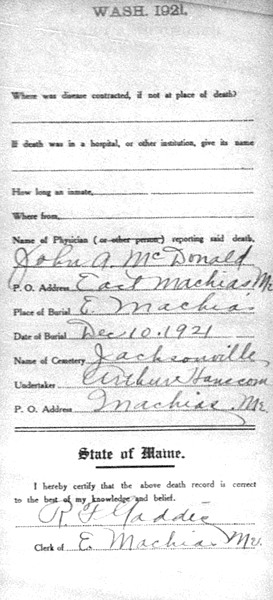 WASH. 1921.
Where was disease contracted, if not at place of death?
If death was in a hospital, or other institution, give its name
How long an inmate,
Where from,
Name of Physician (or other person) reporting said death,
John A. McDonald
P. O. Address East Machias Me
Place of Burial E. Machias
Date of Burial Dec 10. 1921
Name of Cemetery Jacksonville
Undertaker Arthur Hanscom
P. O. Address Machias, Me
State of Maine.
I hereby certify that the above death record is correct
to the best of my knowledge and belief.
R F Gaddis
Clerk of E. Machias Me.